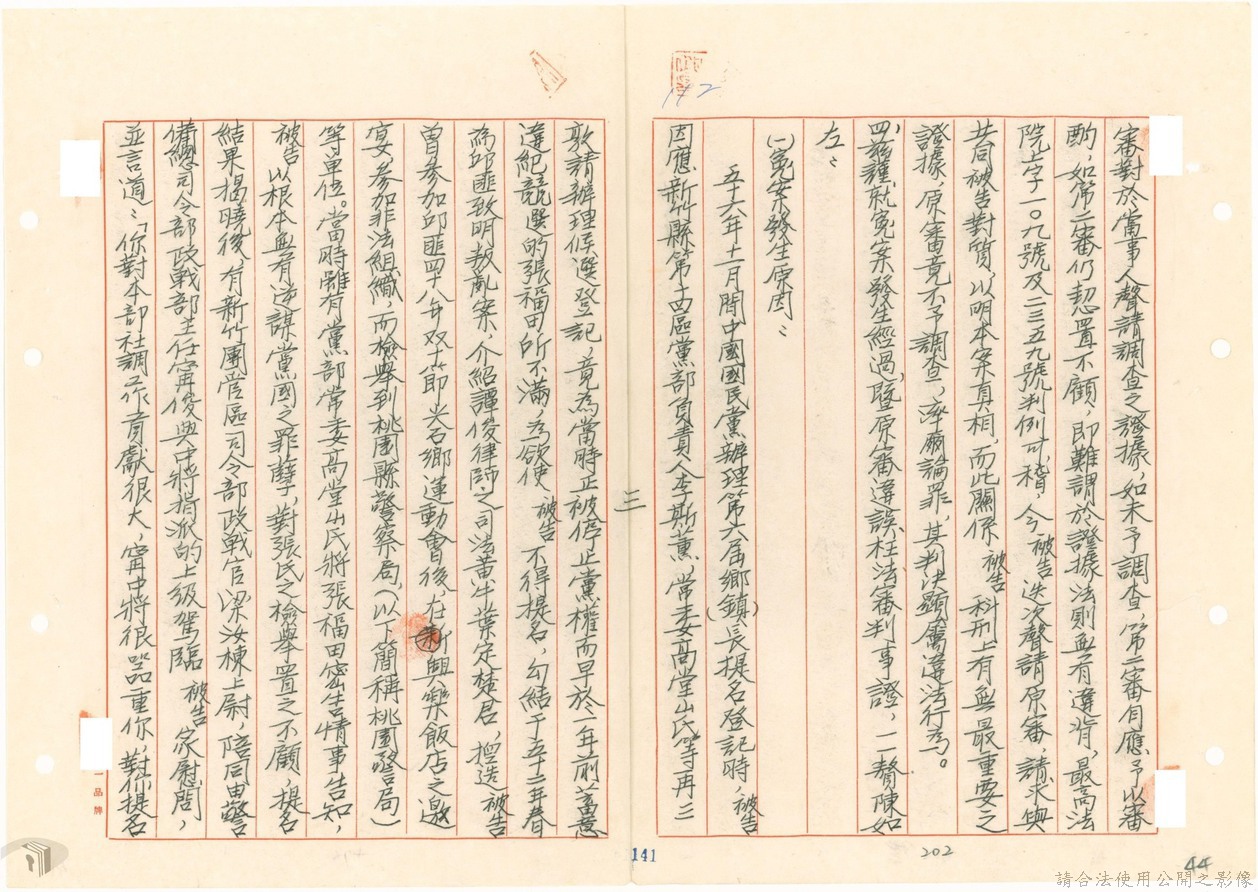 審對於當事人聲請調查之證據，如未予調查，第二審自應予以審
酌，如第二審仍恝置不顧，即難謂於證據法則無有違背，最高法
院上字一〇九號及二三五九號判例可稽，今被告迭次聲請原審，請求與
共同被告對質，以明本案真相，而此關係被告科刑上有無最重要之
證據，原審竟不予調查，率爾論罪，其判決顯屬違法行為。
四、茲謹就冤案發生經過，暨原審違誤枉法審判事證，一一臚陳如
左：
㈠冤案發生原因：
五十六年十一月間中國國民黨辦理第六屆鄉（鎮）長提名登記時，被告
因應新竹縣第十四區黨部負責人李斯薰，常委高堂山氏等再三
敦請辦理候選登記，竟為當時正被停止黨權而早於一年前蓄意
違紀競選的張福田所不滿，為欲使被告不得提名，勾結于五十二年春
為邱匪致明叛亂案，介紹譚俊律師之司法黃牛葉定楚君，揑造被告
曾參加邱匪四八年双十節关石鄉運動會後，在新興樂飯店之邀
宴，參加非法組織，而檢舉到桃園縣警察局（以下簡稱桃園警局）
等單位。當時雖有黨部常委高堂山氏將張福田密告情事告知，
被告以根本無有逆謀黨國之罪孽，對張氏之檢舉置之不顧，提名
結果揭曉後，有新竹團管區司令部政戰官梁汝棟上尉，陪同由警
備總司令部政戰部主任甯俊興中將指派的上級駕臨被告家慰問，
並言道：「你對本部社調工作貢獻很大，甯中將很器重你，對你提名
三
142
141
202
44
一品牌
請合法使用公開之影像